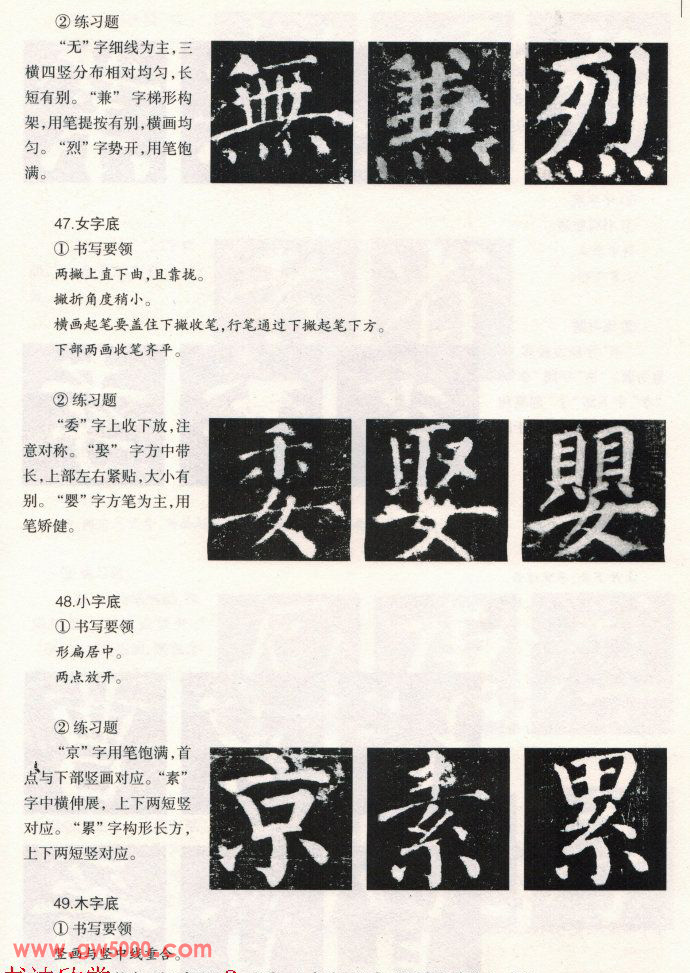 ② 练习题
“无”字细线为主,三
横四竖分布相对均匀,长
短有别。“兼” 字梯形构
架,用笔提按有别,横画均
匀。“烈”字势开,用笔饱
满。
無 兼 烈
47.女字底
① 书写要领
两撇上直下曲,且靠拢。
撇折角度稍小。
横画起笔要盖住下撇收笔,行笔通过下撇起笔下方。
下部两画收笔齐平。
② 练习题
“委”字上收下放,注
意对称。“娶” 字方中带
长,上部左右紧贴,大小有
别。“婴”字方笔为主,用
笔矫健。
委 娶 嬰
48.小字底
① 书写要领
形扁居中。
两点放开。
② 练习题
“京”字用笔饱满,首
点与下部竖画对应。“素”
字中横伸展,上下两短竖
对应。“累”字构形长方,
上下两短竖对应。
京 素 累
49.木字底
① 书写要领
竖画与竖中线重合。
www.gw5000.com